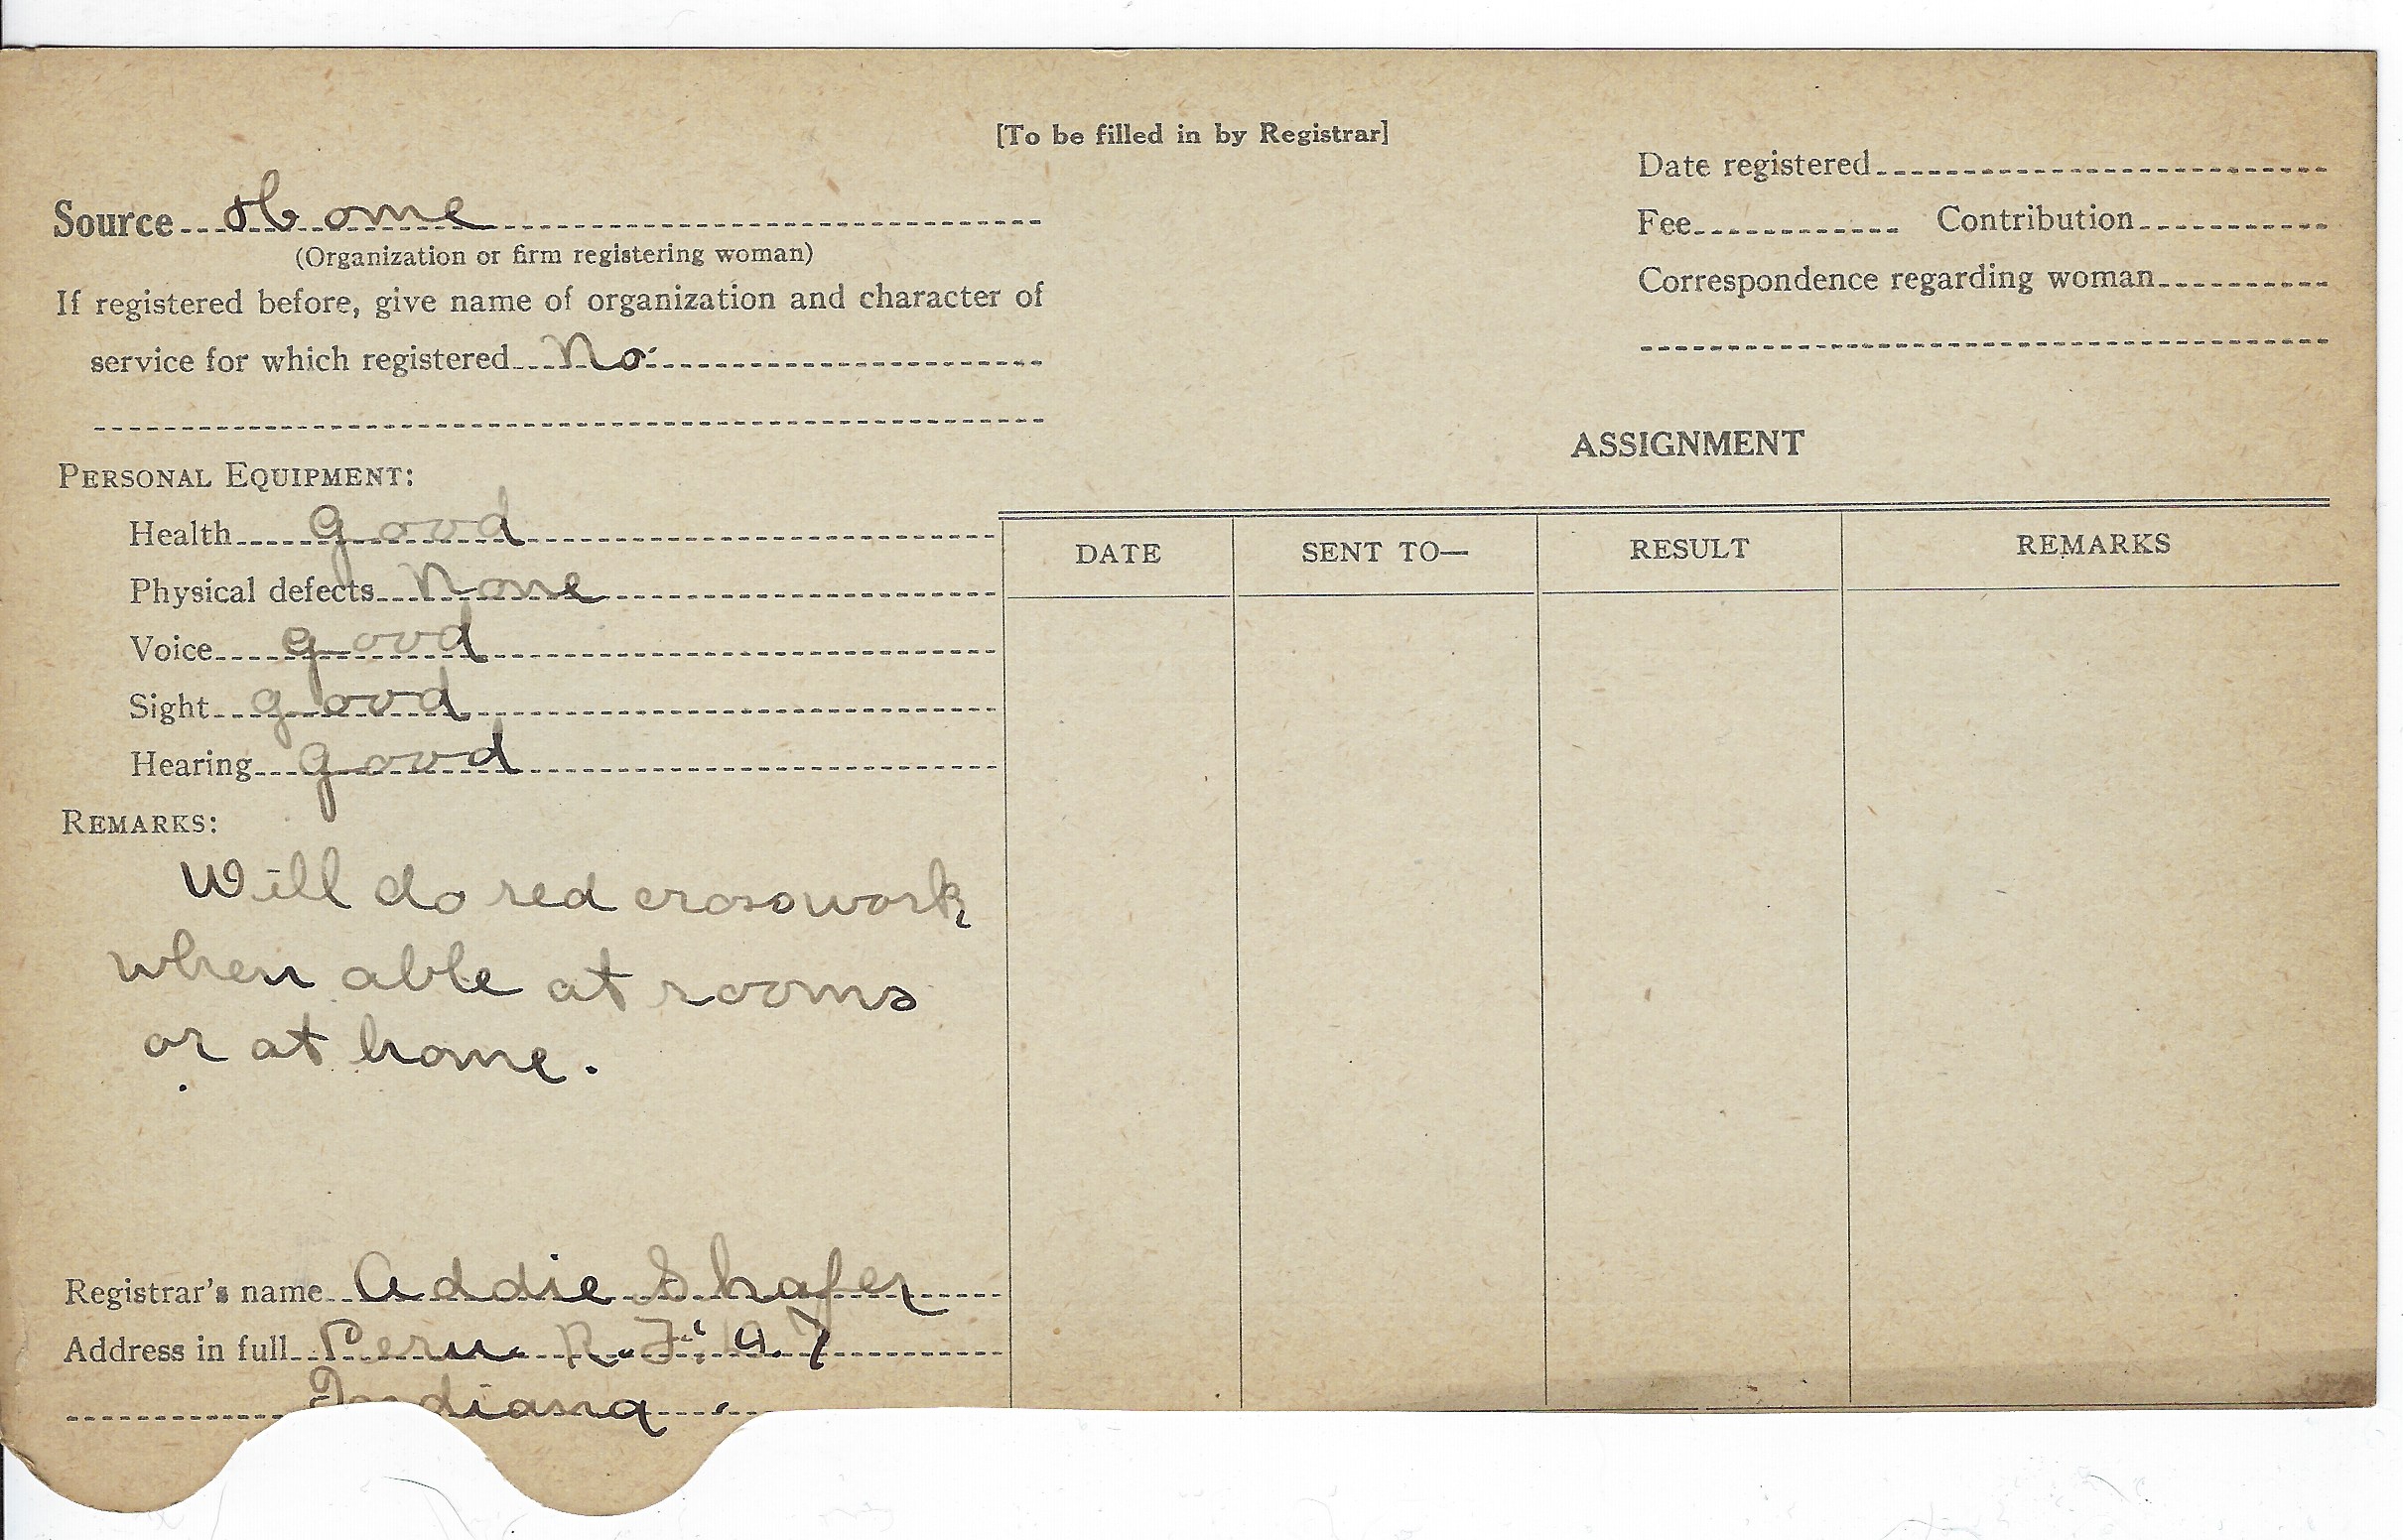 [To be filled in by Registrar]
Source Home
(Organization or firm registering woman)
If registered before, give name of organization and character of
service for which registered No
Date registered
Fee Contribution
Correspondence regarding woman
PERSONAL EQUIPMENT:
Health good
Physical defects None
Voice good
Sight good
Hearing good
REMARKS:
Will do red crosswork
when able at rooms
or at home.
Registrar's name Addie Shafer
Address in full Peru R.F. 7
Indiana
ASSIGNMENT
DATE SENT TO— RESULT REMARKS